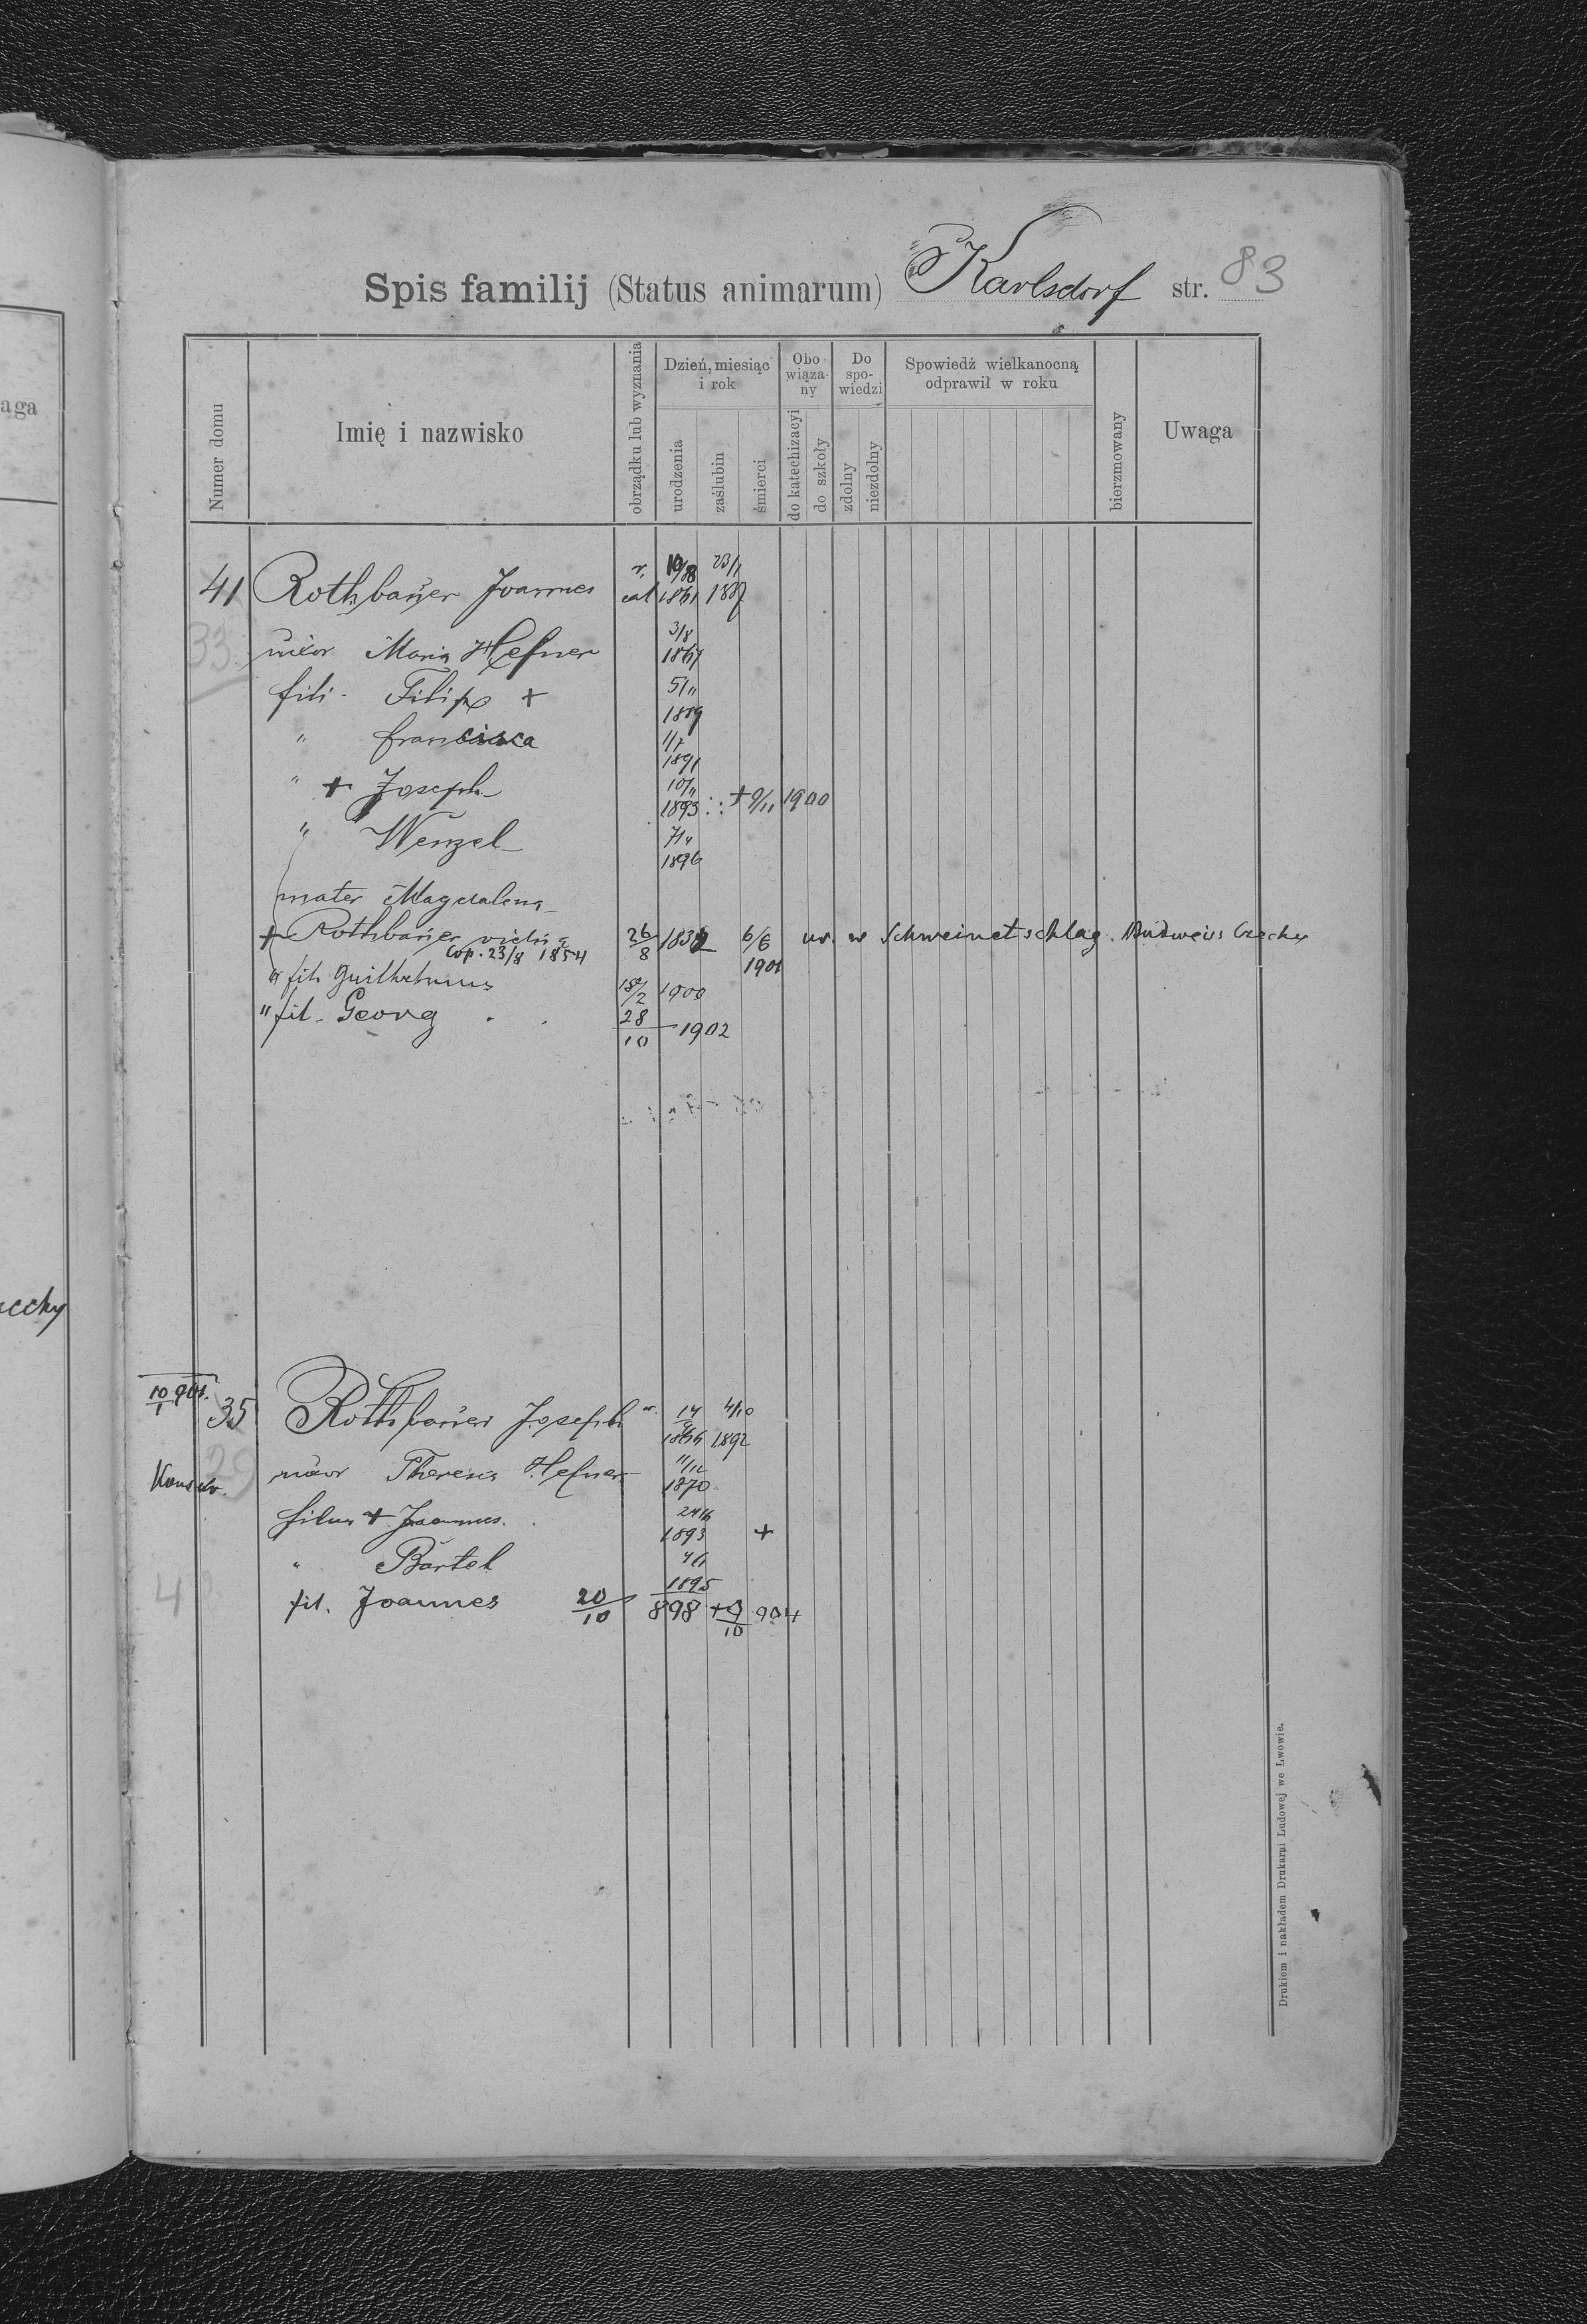 aga
ecchy
Spis familij (Status animarum) Karlsdorf str. 83
Numer domu
Imię i nazwisko
obrządku lub wyznania
Dzień, miesiąc i rok
urodzenia
zaślubin
śmierci
Obowiązany
do katechizacyi
do szkoły
Do spowiedzi
zdolny
niezdolny
Spowiedź wielkanocną odprawił w roku
bierzmowany
Uwaga
41 Rothbauer Joannes r. cat 10/8 1861 23/1 1887
33
uxor Maria Hefner 3/8 1867
fili. Filip + 5/11 1889
" Francisca 1/7 1891
" + Joseph 10/11 1893 + 9/11 1900
" Wenzel 7/4 1896
mater Magdalena
+ Rothbauer vidua 26/8 1832 6/6 1901 ur. w Schweinetschlag. Budweiss Czechy
Cop. 23/8 1854
" fil. Guilhelmus 18/2 1900
" fil. Georg 28/10 1902
10/1 904. 35 Rothbauer Joseph r. 14 1866 4/10 1892
29
uxor Theresia Hefner 11/12 1870
filius + Joannes. 1893 +
" Bartel 1895
4
fil. Joannes 20/10 898 + 9/10 904
Drukiem i nakładem Drukarni Ludowej we Lwowie.